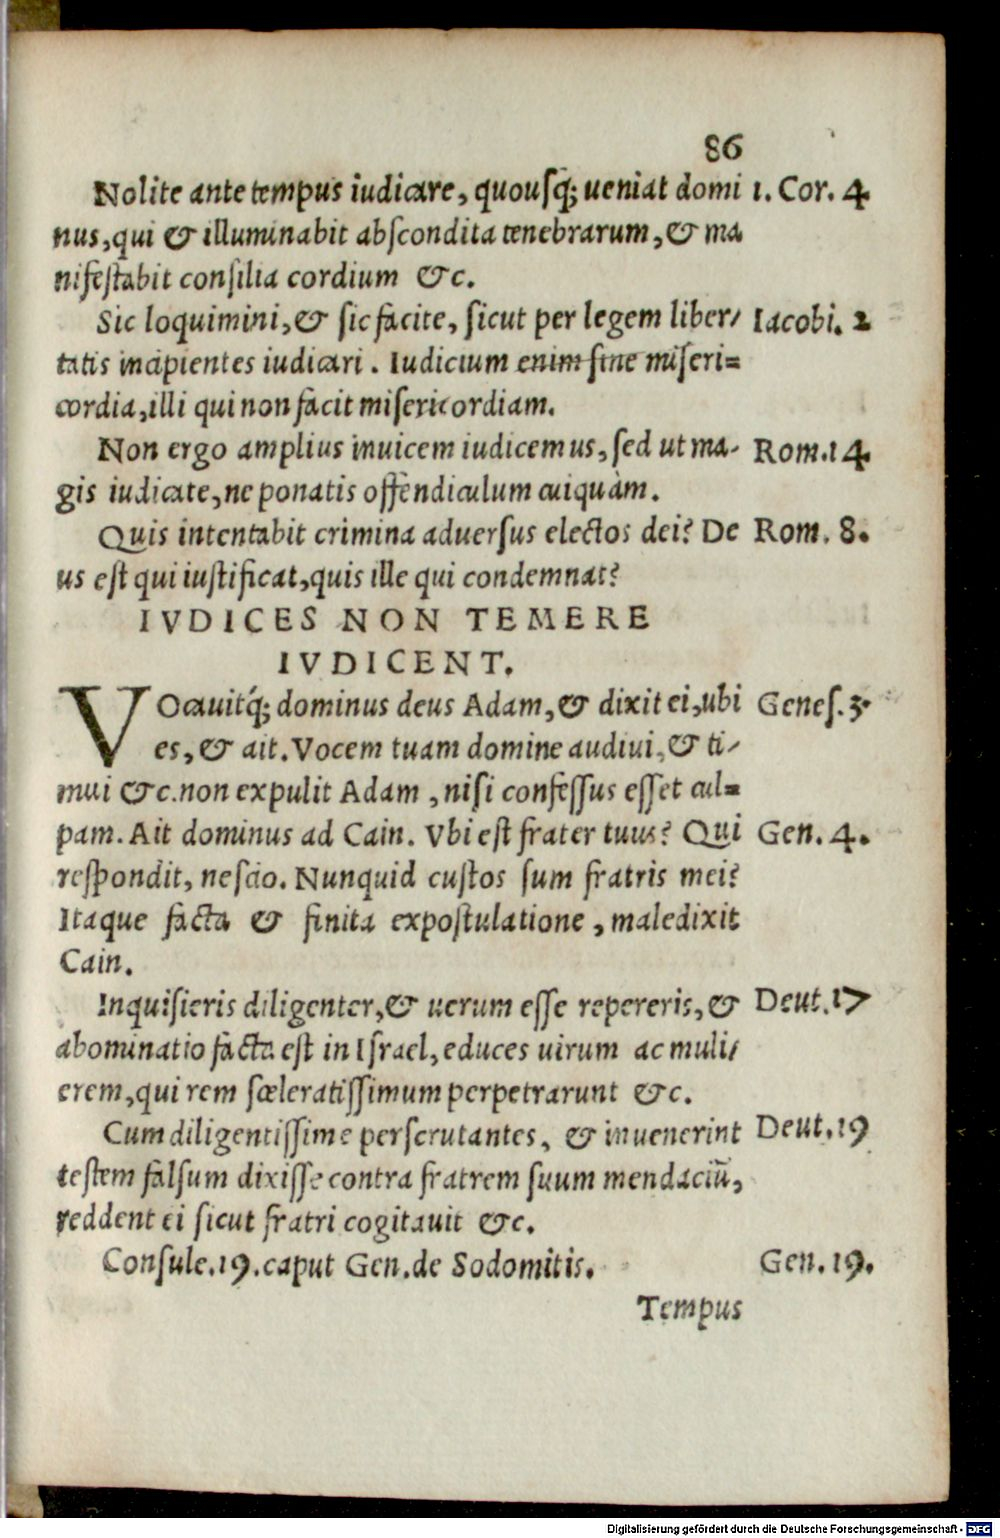 86
Nolite ante tempus iudicare, quousq; ueniat domi 1. Cor. 4
nus, qui & illuminabit abscondita tenebrarum, & ma
nifestabit consilia cordium &c.
Sic loquimini, & sic facite, sicut per legem liber/ Iacobi. 2
tatis incipientes iudicari. Iudicium enim sine miseri=
cordia, illi qui non facit misericordiam.
Non ergo amplius inuicem iudicemus, sed ut ma- Rom. 14
gis iudicate, ne ponatis offendiculum cuiquàm.
Quis intentabit crimina aduersus electos dei? De Rom. 8.
us est qui iustificat, quis ille qui condemnat?
IVDICES NON TEMERE
IVDICENT.
VOcauitq́; dominus deus Adam, & dixit ei, ubi Genes. 3.
es, & ait. Vocem tuam domine audiui, & ti/
mui &c. non expulit Adam, nisi confessus esset cul=
pam. Ait dominus ad Cain. Vbi est frater tuus? Qui Gen. 4.
respondit, nescio. Nunquid custos sum fratris mei?
Itaque facta & finita expostulatione, maledixit
Cain.
Inquisieris diligenter, & uerum esse repereris, & Deut. 17
abominatio facta est in Israel, educes uirum ac muli/
erem, qui rem sceleratissimum perpetrarunt &c.
Cum diligentissime perscrutantes, & inuenerint Deut. 19
testem falsum dixisse contra fratrem suum mendaciũ,
reddent ei sicut fratri cogitauit &c.
Consule. 19. caput Gen. de Sodomitis. Gen. 19.
Tempus
Digitalisierung gefördert durch die Deutsche Forschungsgemeinschaft - DFG